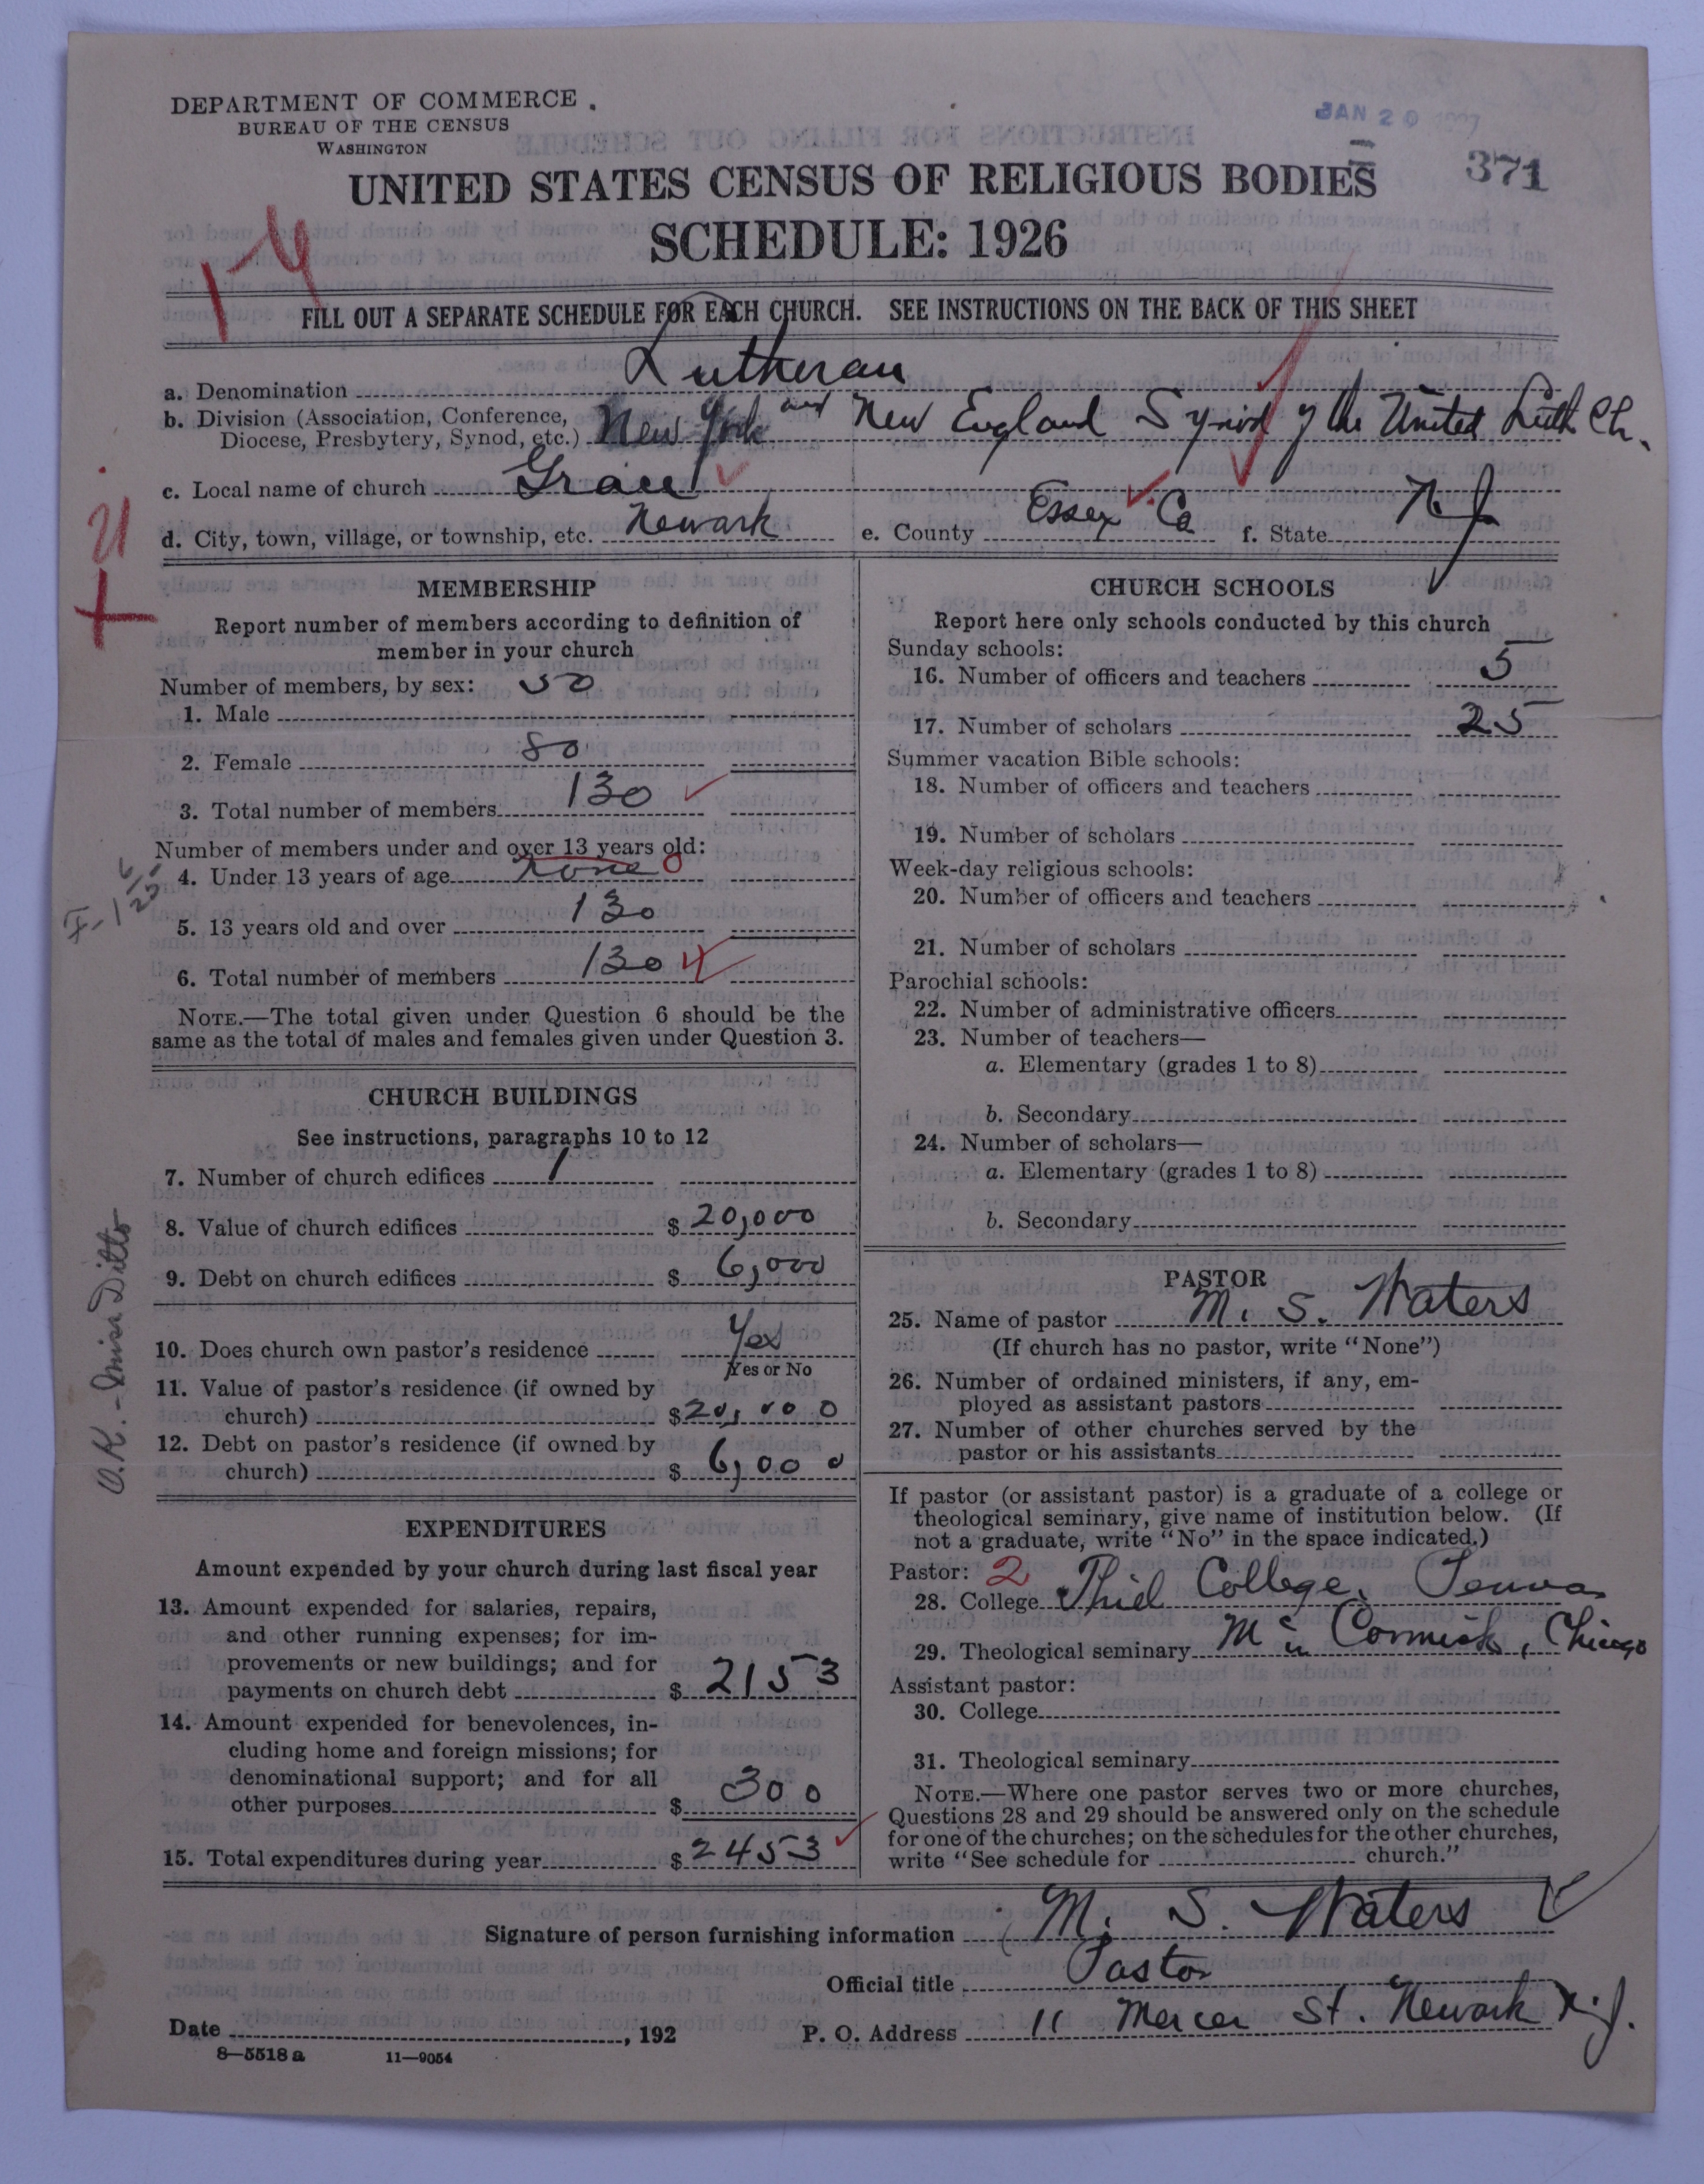 DEPARTMENT OF COMMERCE
BUREAU OF THE CENSUS
WASHINGTON
JAN 20 1927
371
UNITED STATES CENSUS OF RELIGIOUS BODIES
SCHEDULE: 1926
FILL OUT A SEPARATE SCHEDULE FOR EACH CHURCH. SEE INSTRUCTIONS ON THE BACK OF THIS SHEET
a. Denomination Lutheran
b. Division (Association, Conference, Diocese, Presbytery, Synod, etc.) New York and New England Synod of the United Luth Ch.
c. Local name of church Grace
d. City, town, village, or township, etc. Newark e. County Essex Co f. State N. J.
MEMBERSHIP
Report number of members according to definition of
member in your church
Number of members, by sex: 50
1. Male
2. Female 80
3. Total number of members 130
Number of members under and over 13 years old:
4. Under 13 years of age none 0
5. 13 years old and over 130
6. Total number of members 130
NOTE.—The total given under Question 6 should be the
same as the total of males and females given under Question 3.
CHURCH BUILDINGS
See instructions, paragraphs 10 to 12
7. Number of church edifices 1
8. Value of church edifices $ 20,000
9. Debt on church edifices $ 6,000
10. Does church own pastor's residence Yes
Yes or No
11. Value of pastor's residence (if owned by
church) $ 20,000
12. Debt on pastor's residence (if owned by
church) $ 6,000
O.K. - Miss Ditto
EXPENDITURES
Amount expended by your church during last fiscal year
13. Amount expended for salaries, repairs,
and other running expenses; for im-
provements or new buildings; and for
payments on church debt $ 2153
14. Amount expended for benevolences, in-
cluding home and foreign missions; for
denominational support; and for all
other purposes $ 300
15. Total expenditures during year $ 2453
CHURCH SCHOOLS
Report here only schools conducted by this church
Sunday schools:
16. Number of officers and teachers 5
17. Number of scholars 25
Summer vacation Bible schools:
18. Number of officers and teachers
19. Number of scholars
Week-day religious schools:
20. Number of officers and teachers
21. Number of scholars
Parochial schools:
22. Number of administrative officers
23. Number of teachers—
a. Elementary (grades 1 to 8)
b. Secondary
24. Number of scholars—
a. Elementary (grades 1 to 8)
b. Secondary
PASTOR
25. Name of pastor M. S. Waters
(If church has no pastor, write "None")
26. Number of ordained ministers, if any, em-
ployed as assistant pastors
27. Number of other churches served by the
pastor or his assistants
If pastor (or assistant pastor) is a graduate of a college or
theological seminary, give name of institution below. (If
not a graduate, write "No" in the space indicated.)
Pastor: 2
28. College Thiel College, Penna
29. Theological seminary McCormick, Chicago
Assistant pastor:
30. College
31. Theological seminary
NOTE.—Where one pastor serves two or more churches,
Questions 28 and 29 should be answered only on the schedule
for one of the churches; on the schedules for the other churches,
write "See schedule for church."
Signature of person furnishing information M. S. Waters
Official title Pastor
Date , 192 P. O. Address 11 Mercer St. Newark N.J.
8—5518 a 11—9054